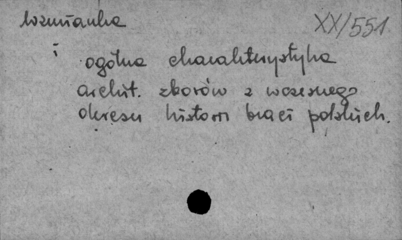 wzmianka XX/551
i
ogólna charakterystyka
archit. zborów z wczesnego
okresu histori braci polskich.